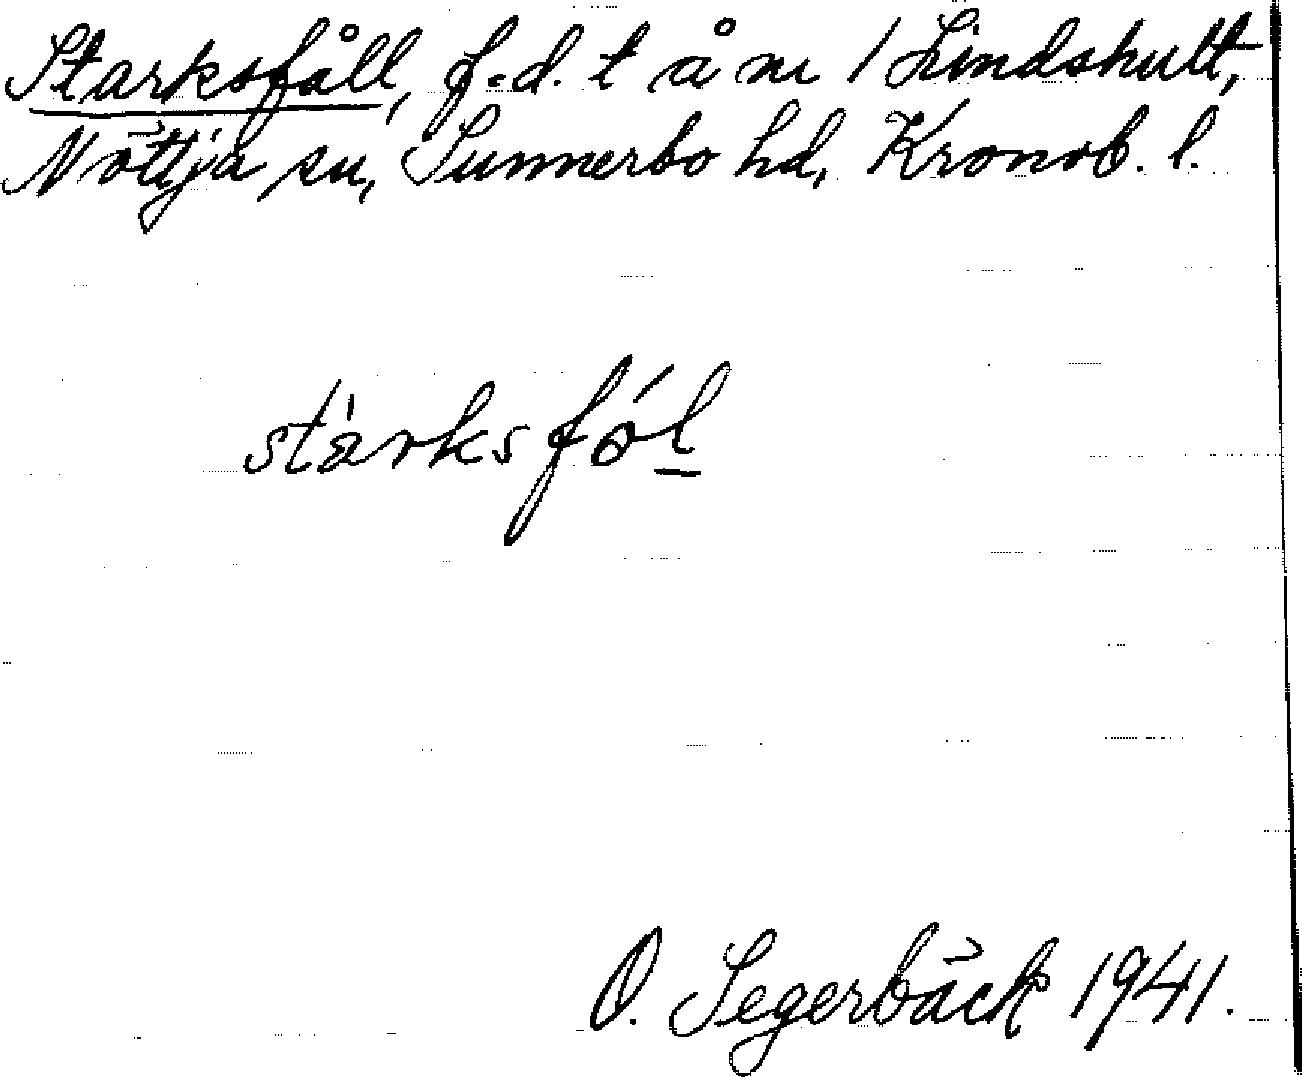 Starksfåll, f.d. t å m / Lindshult,
Nöttja sn, Sunnerbo hd, Kronob. l.
starksfól
O. Segerbäck 1941.